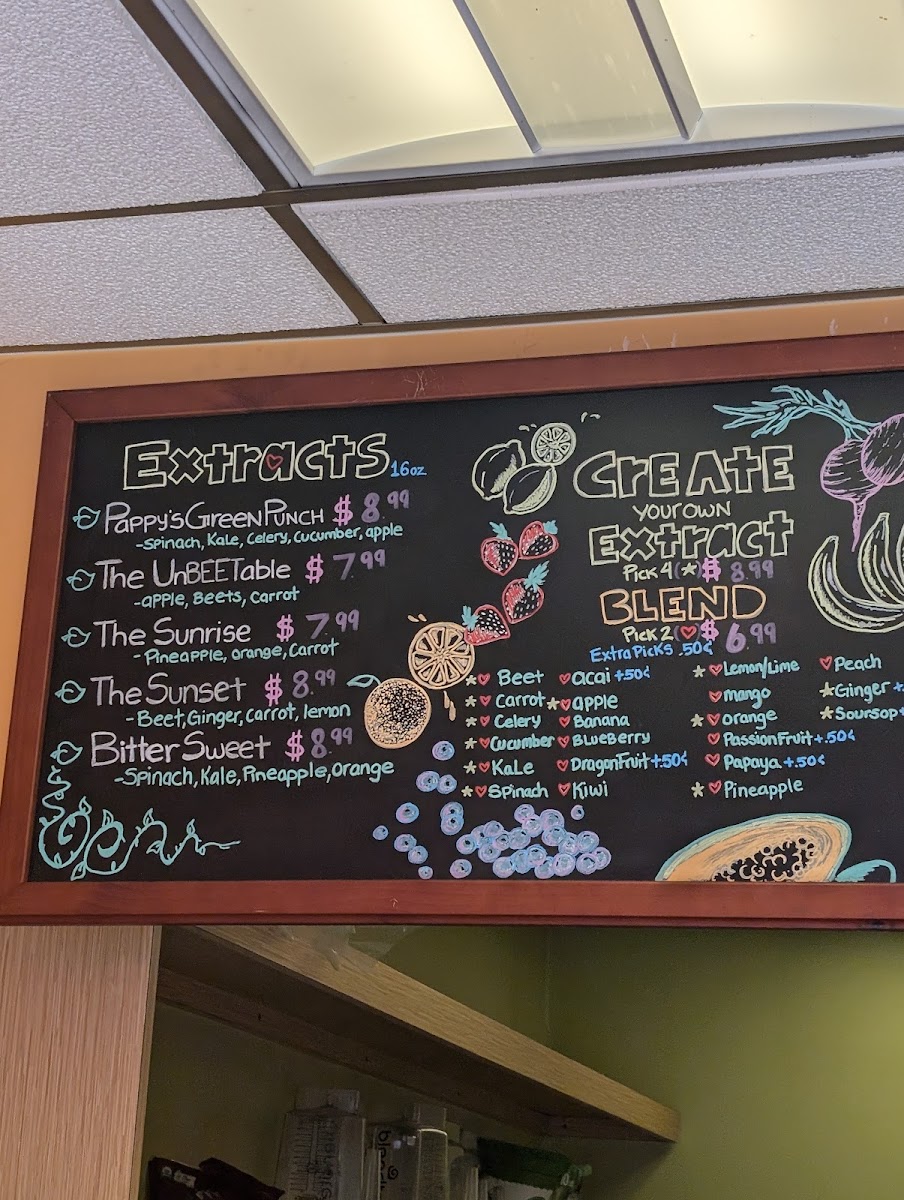 Extracts 16oz
Pappy's Green Punch $ 8.99
-Spinach, Kale, Celery, Cucumber, apple
The UnBEETable $ 7.99
-apple, Beets, Carrot
The Sunrise $ 7.99
-Pineapple, orange, Carrot
The Sunset $ 8.99
-Beet, Ginger, Carrot, lemon
Bitter Sweet $ 8.99
-Spinach, Kale, Pineapple, Orange
CREATE
YOUR OWN
Extract
Pick 4 (*) $ 8.99
BLEND
Pick 2 (♥ $ 6.99
Extra Picks .50¢
*♥ Beet
*♥ Carrot
*♥ Celery
*♥ Cucumber
*♥ Kale
*♥ Spinach
♥ acai +50¢
*♥ apple
♥ Banana
♥ BlueBerry
♥ DragonFruit +.50¢
♥ Kiwi
*♥ Lemon/Lime
♥ mango
*♥ orange
♥ Passion Fruit +.50¢
♥ Papaya +.50¢
*♥ Pineapple
♥ Peach
*Ginger +
*Soursop+